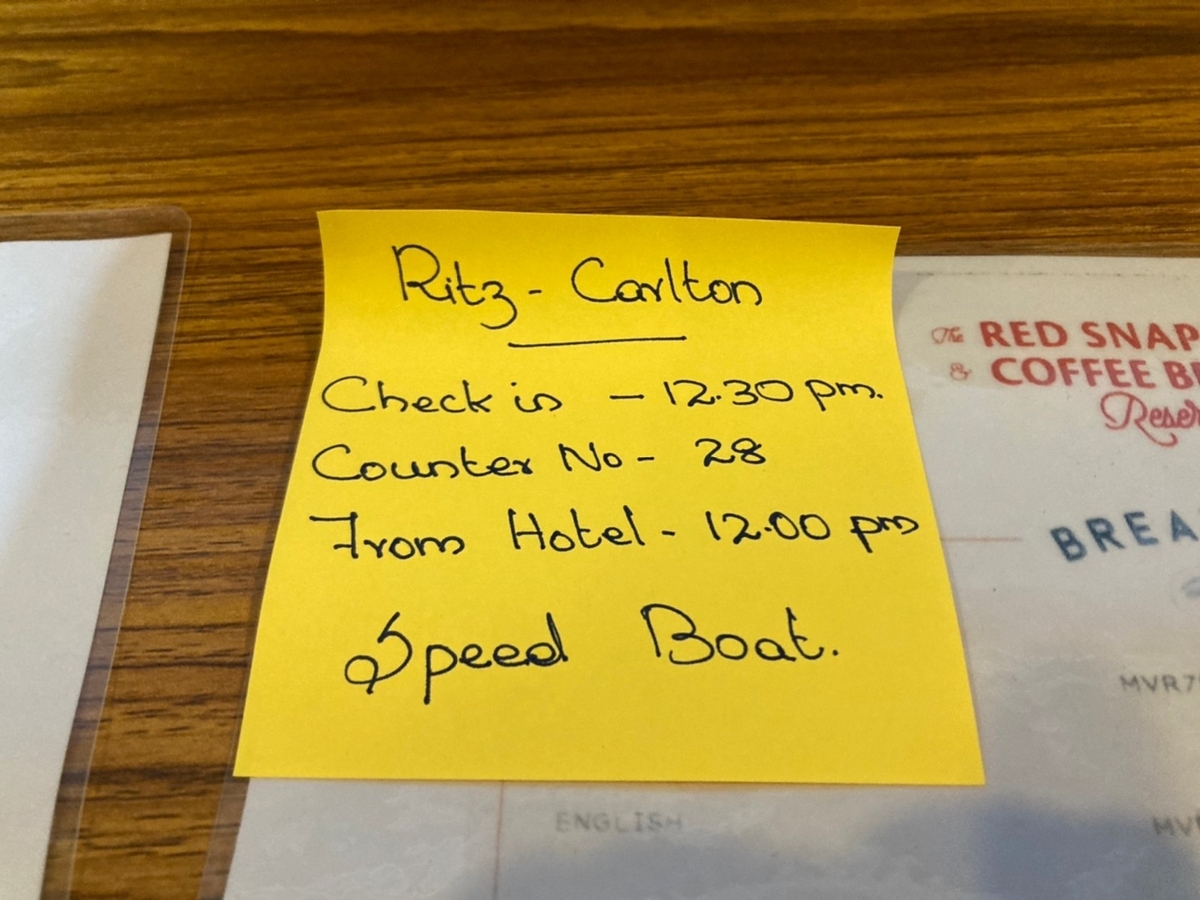 Ritz - Carlton
Check in - 12.30 pm.
Counter No - 28
From Hotel - 12.00 pm
Speed Boat.
The RED SNAP
& COFFEE
ENGLISH